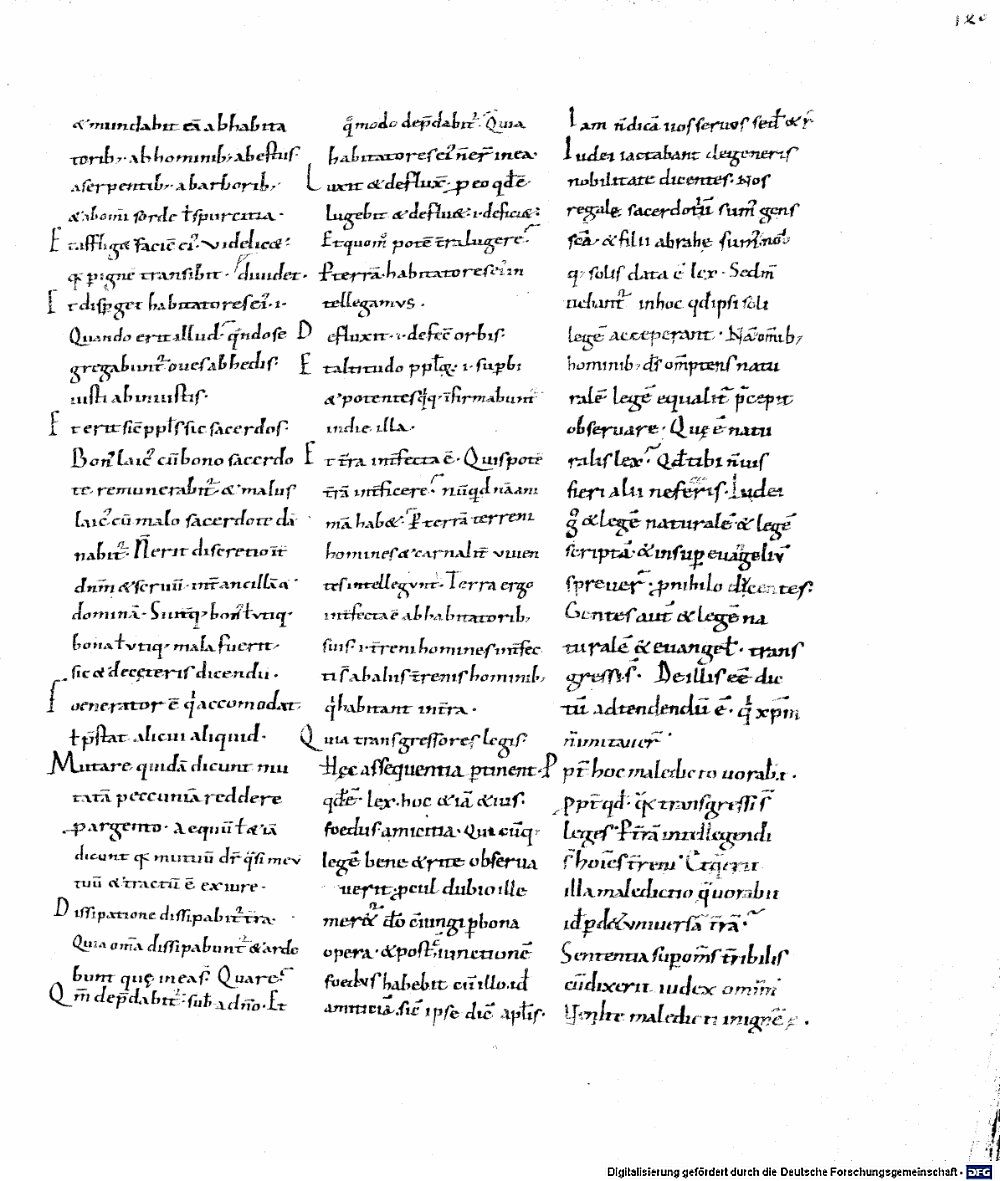 & mundabit eā abhabita
torib; abhominib; abestus·
aserpentib; abarborib;
& abom̄i sorde ł spurcitia·
Et affliget faciē ei᷒· videlicet
q̨ pignē transibit· diuidet·
Et dispget habitatores ei᷒·i·
Quando erit illud qn̄do se
gregabunt᷒ oues abhedis·
iusti ab iniustis·
Et erit sic̄ ppl̄s sic sacerdos·
Bon᷒ laic᷒ cū bono sacerdo
te· remunerabit᷒· & malus
laic᷒ cū malo sacerdote dā
nabit᷒· N̄ erit discretio int̄
dnm̄ & seruū· int̄ ancillā &
dominā· Siue
bona ł utiq; mala fuerit·
sic & deceteris dicendū·
foenerator ē q̇ accomodat
ł p̄stat alicui aliquid·
Mutare quidā dicunt mu
tatā peccuniā reddere
p argento· aequū ł &iā
dicunt q̨ mutuū dr̄ q̈si meū
tuū & tractū ē exiure·
Dissipatione dissipabit᷒ tr̄a·
Quia om̄a dissipabunt᷒ & arde
bunt quę inea s̄· Quare
Qm̄ dep̄dabit᷒· sub adn̄o· Et
q̊modo dep̄dabit᷒· Quia
habitatores ei᷒ n̄ er̄ inea·
Luxit & defluxˉ· p eo qd̄ ē
lugebit & defluet·i·deficiet
Et quom̊ potē tr̄a lugere
P terrā· habitatores ei᷒ in
tellegamus·
Defluxit·i·defec̄ orbis·
Et altitudo ppl̄i·i·supbi
& potentes q;q; infirmabunt᷒
in die illa·
Et tr̄a infecta ē· Quis potē
tr̄ā inficere nūq̇d nā ani
mā hab&· P terrā terreni
homines & carnalit̄ viuen
tes intellegunt· Terra ergo
infecta ē abhabitatorib;
suis·i·tr̄eni homines infec
ti s̄ ab aliis tr̄enis hominib;
q̇ habitant in tr̄a·
Quia transgressores legis·
Hęc assequentia ptinent·
qd̄ ē· lex· hoc &iā &ius·
foedus amicitia· Qui cūq;
legē bene & rite obserua
uerit· pcul dubio ille
mer&᷒ dō c̄iungi p bona
opera· & post c̄iunctionē
foedus habebit cū illo· id
amiticiā· sic̄ ipse dic̄ apl̄is·
Iam n̄ dicā uos seruos sed ł & r̄
Iudei iactabant de generis
nobilitate dicentes· Nos
regale sacerdotiū sum᷒ gens
scā· & filii abrahę sum᷒ nob̄
q; solis data ē lex· Sed m̄
uehunt᷒ inhoc qd̄ ipsi soli
legē acceperant· Nā om̄ib;
hominib; ds̄ om̄ptens natu
ralē legē equalit̄ p̄cepit
obseruare· Quę ē natu
ralis lex· Qd̄ tibi n̄ uis
fieri alii nefeceris· Iudei
g̊ & legē naturalē & legē
scriptā· & insup euāgeliū
spreuer̄· p nihilo dicentes·
Gentes aut̄ & legē na
turalē & euangeł· trans
gressis· De illis eē dic
tū adtendendū ē· q̇ xpm̄
n̄ imitauer̄·
Ppt̄ hoc maledictio uorabit·
Ppt̄ qd̄· q̨ transgressi s̄
leges· P tr̄ā intellegendi
s̄ hoīes tr̄eni·
illa maledictio q̇ uorabit
id pd& uniuersā tr̄ā·
Sententia sup om̄s tr̄ibilis
cū dixerit iudex omīm
Venite maledicti inignē